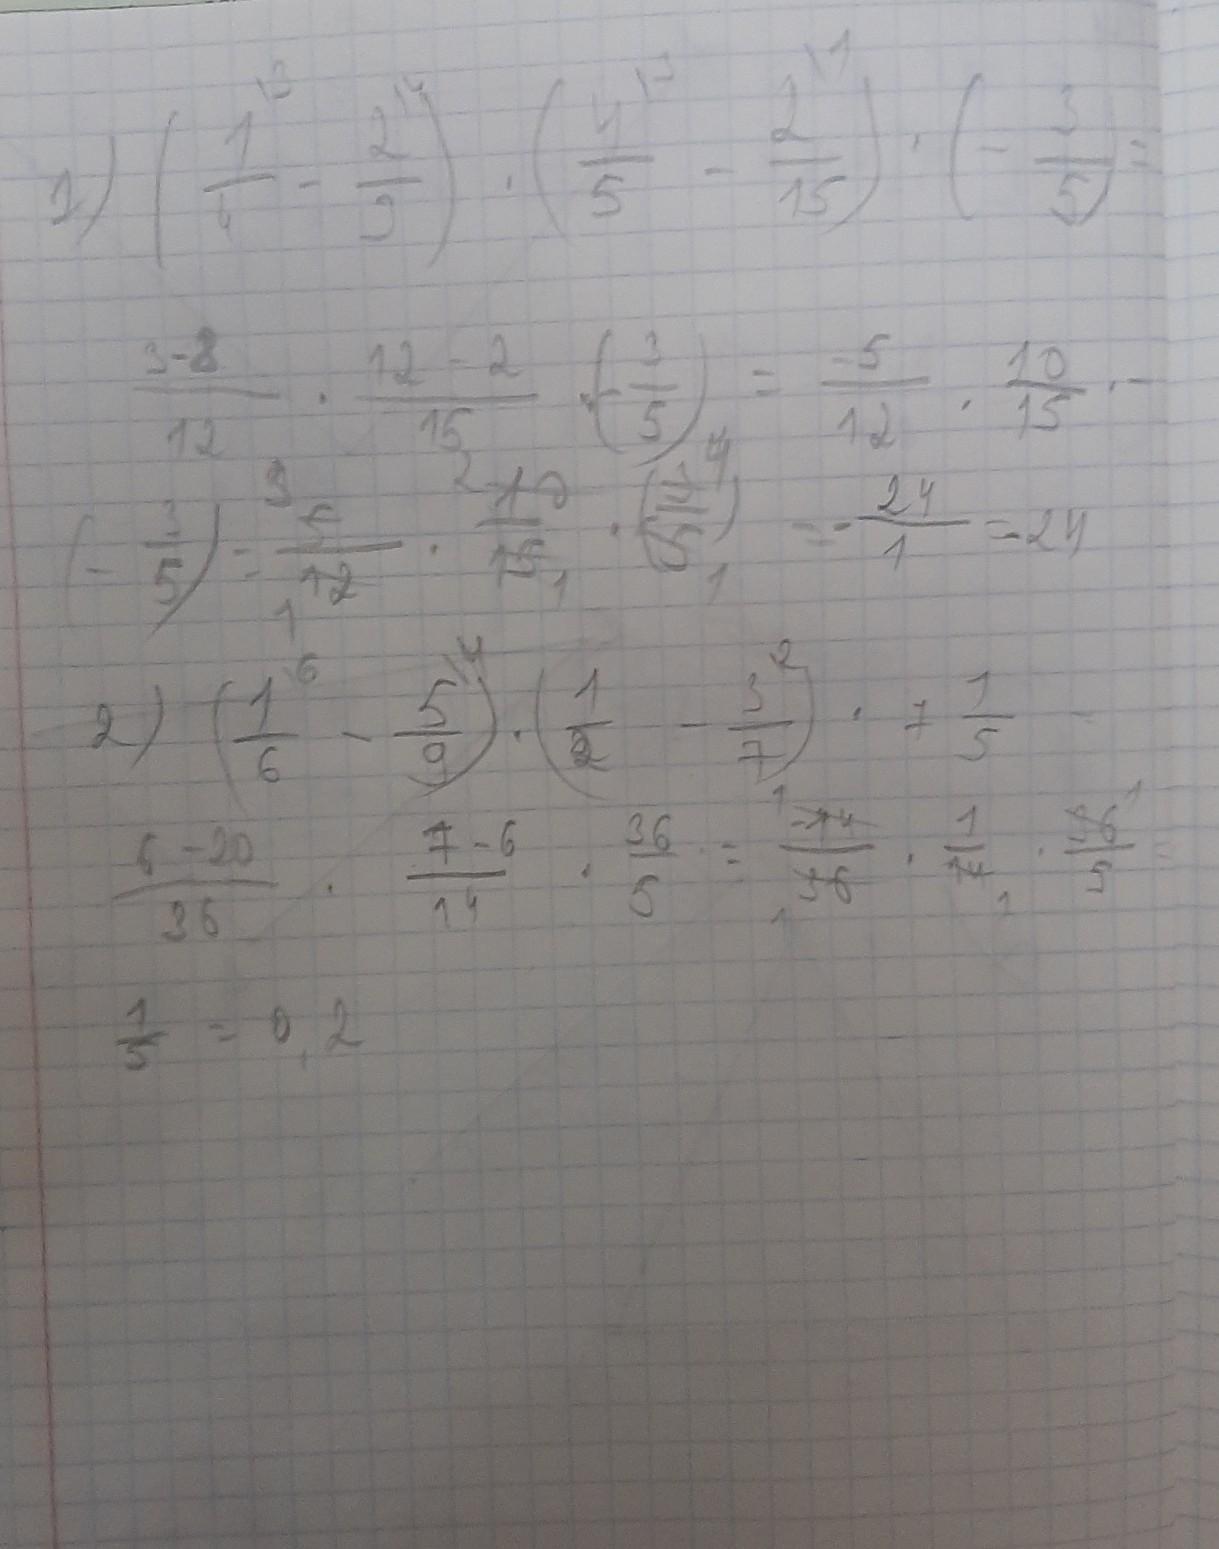 1) (1/4\3 - 2/3\4) · (4/5\3 - 2/15\1) · (- 3/5) =
3-8/12 · 12-2/15 · (- 3/5) = -5/12 · 10/15 · -
(- 3/5) = 5/12 · 10/15 · = - 24/1 = -24
2) (1/6\6 - 5/9\4) · (1/2 - 3/7 2) · 7 1/5 -
6-20/36 · 7-6/14 · 36/5 = -14/36 · 1/14 · 36/5 =
1/5 = 0,2